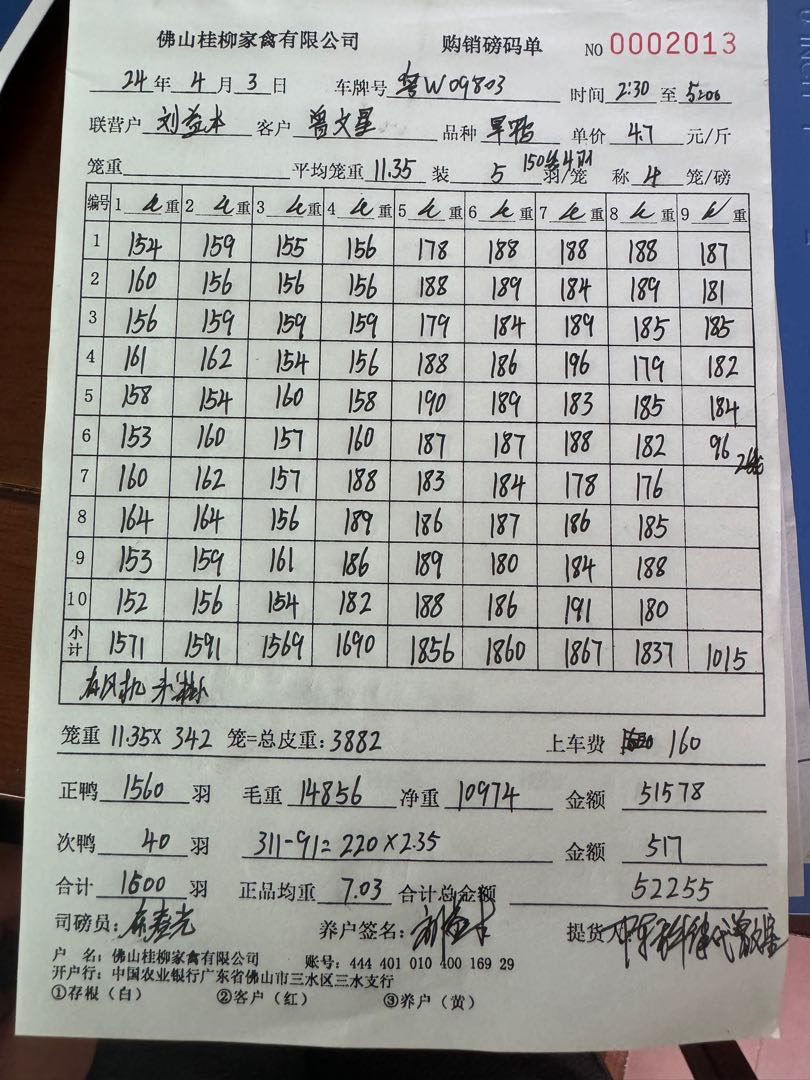 佛山桂柳家禽有限公司 购销磅码单 NO 0002013
24年 4月 3日 车牌号 粤W09803 时间 2:30 至 5:00
联营户 刘益本 客户 曾文星 品种 旱鸭 单价 4.7 元/斤
笼重 平均笼重 11.35 装 5 150 羽/笼 称 4 笼/磅
编号 1 重 2 重 3 重 4 重 5 重 6 重 7 重 8 重 9 重
1 154 159 155 156 178 188 188 188 187
2 160 156 156 156 188 189 184 189 181
3 156 159 159 159 179 184 189 185 185
4 161 162 154 156 188 186 196 179 182
5 158 154 160 158 190 189 183 185 184
6 153 160 157 160 187 187 188 182 96
7 160 162 157 188 183 184 178 176
8 164 164 156 189 186 187 186 185
9 153 159 161 186 189 180 184 188
10 152 156 154 182 188 186 191 180
小计 1571 1591 1569 1690 1856 1860 1867 1837 1015
有风机
笼重 11.35X 342 笼=总皮重: 3882 上车费 160
正鸭 1560 羽 毛重 14856 净重 10974 金额 51578
次鸭 40 羽 311-91=220X2.35 金额 517
合计 1600 羽 正品均重 7.03 合计总金额 52255
司磅员: 养户签名: 刘益本 提货人
户 名: 佛山桂柳家禽有限公司 账号: 444 401 010 400 169 29
开户行: 中国农业银行广东省佛山市三水区三水支行
①存根(白) ②客户(红) ③养户(黄)